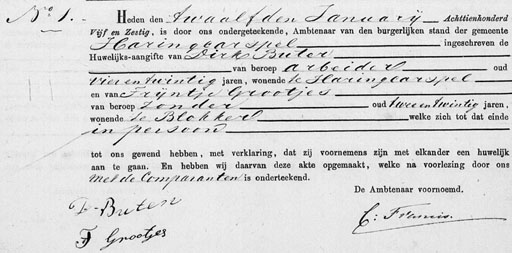 No 1. Heden den Twaalfden Januarij Achttienhonderd
Vijf en Zestig, is door ons ondergeteekende, Ambtenaar van den burgerlijken stand der gemeente
Haringcarspel ingeschreven de
Huwelijks-aangifte van Dirk Buter
van beroep arbeider oud
vierentwintig jaren, wonende te Haringcarspel
en van Trijntje Grootjes
van beroep zonder oud tweeentwintig jaren,
wonende te Blokker welke zich tot dat einde
in persoon
tot ons gewend hebben, met verklaring, dat zij voornemens zijn met elkander een huwelijk
aan te gaan. En hebben wij daarvan deze akte opgemaakt, welke na voorlezing door ons
met de Comparanten is onderteekend.
De Ambtenaar voornoemd.
D Buter
T Grootjes